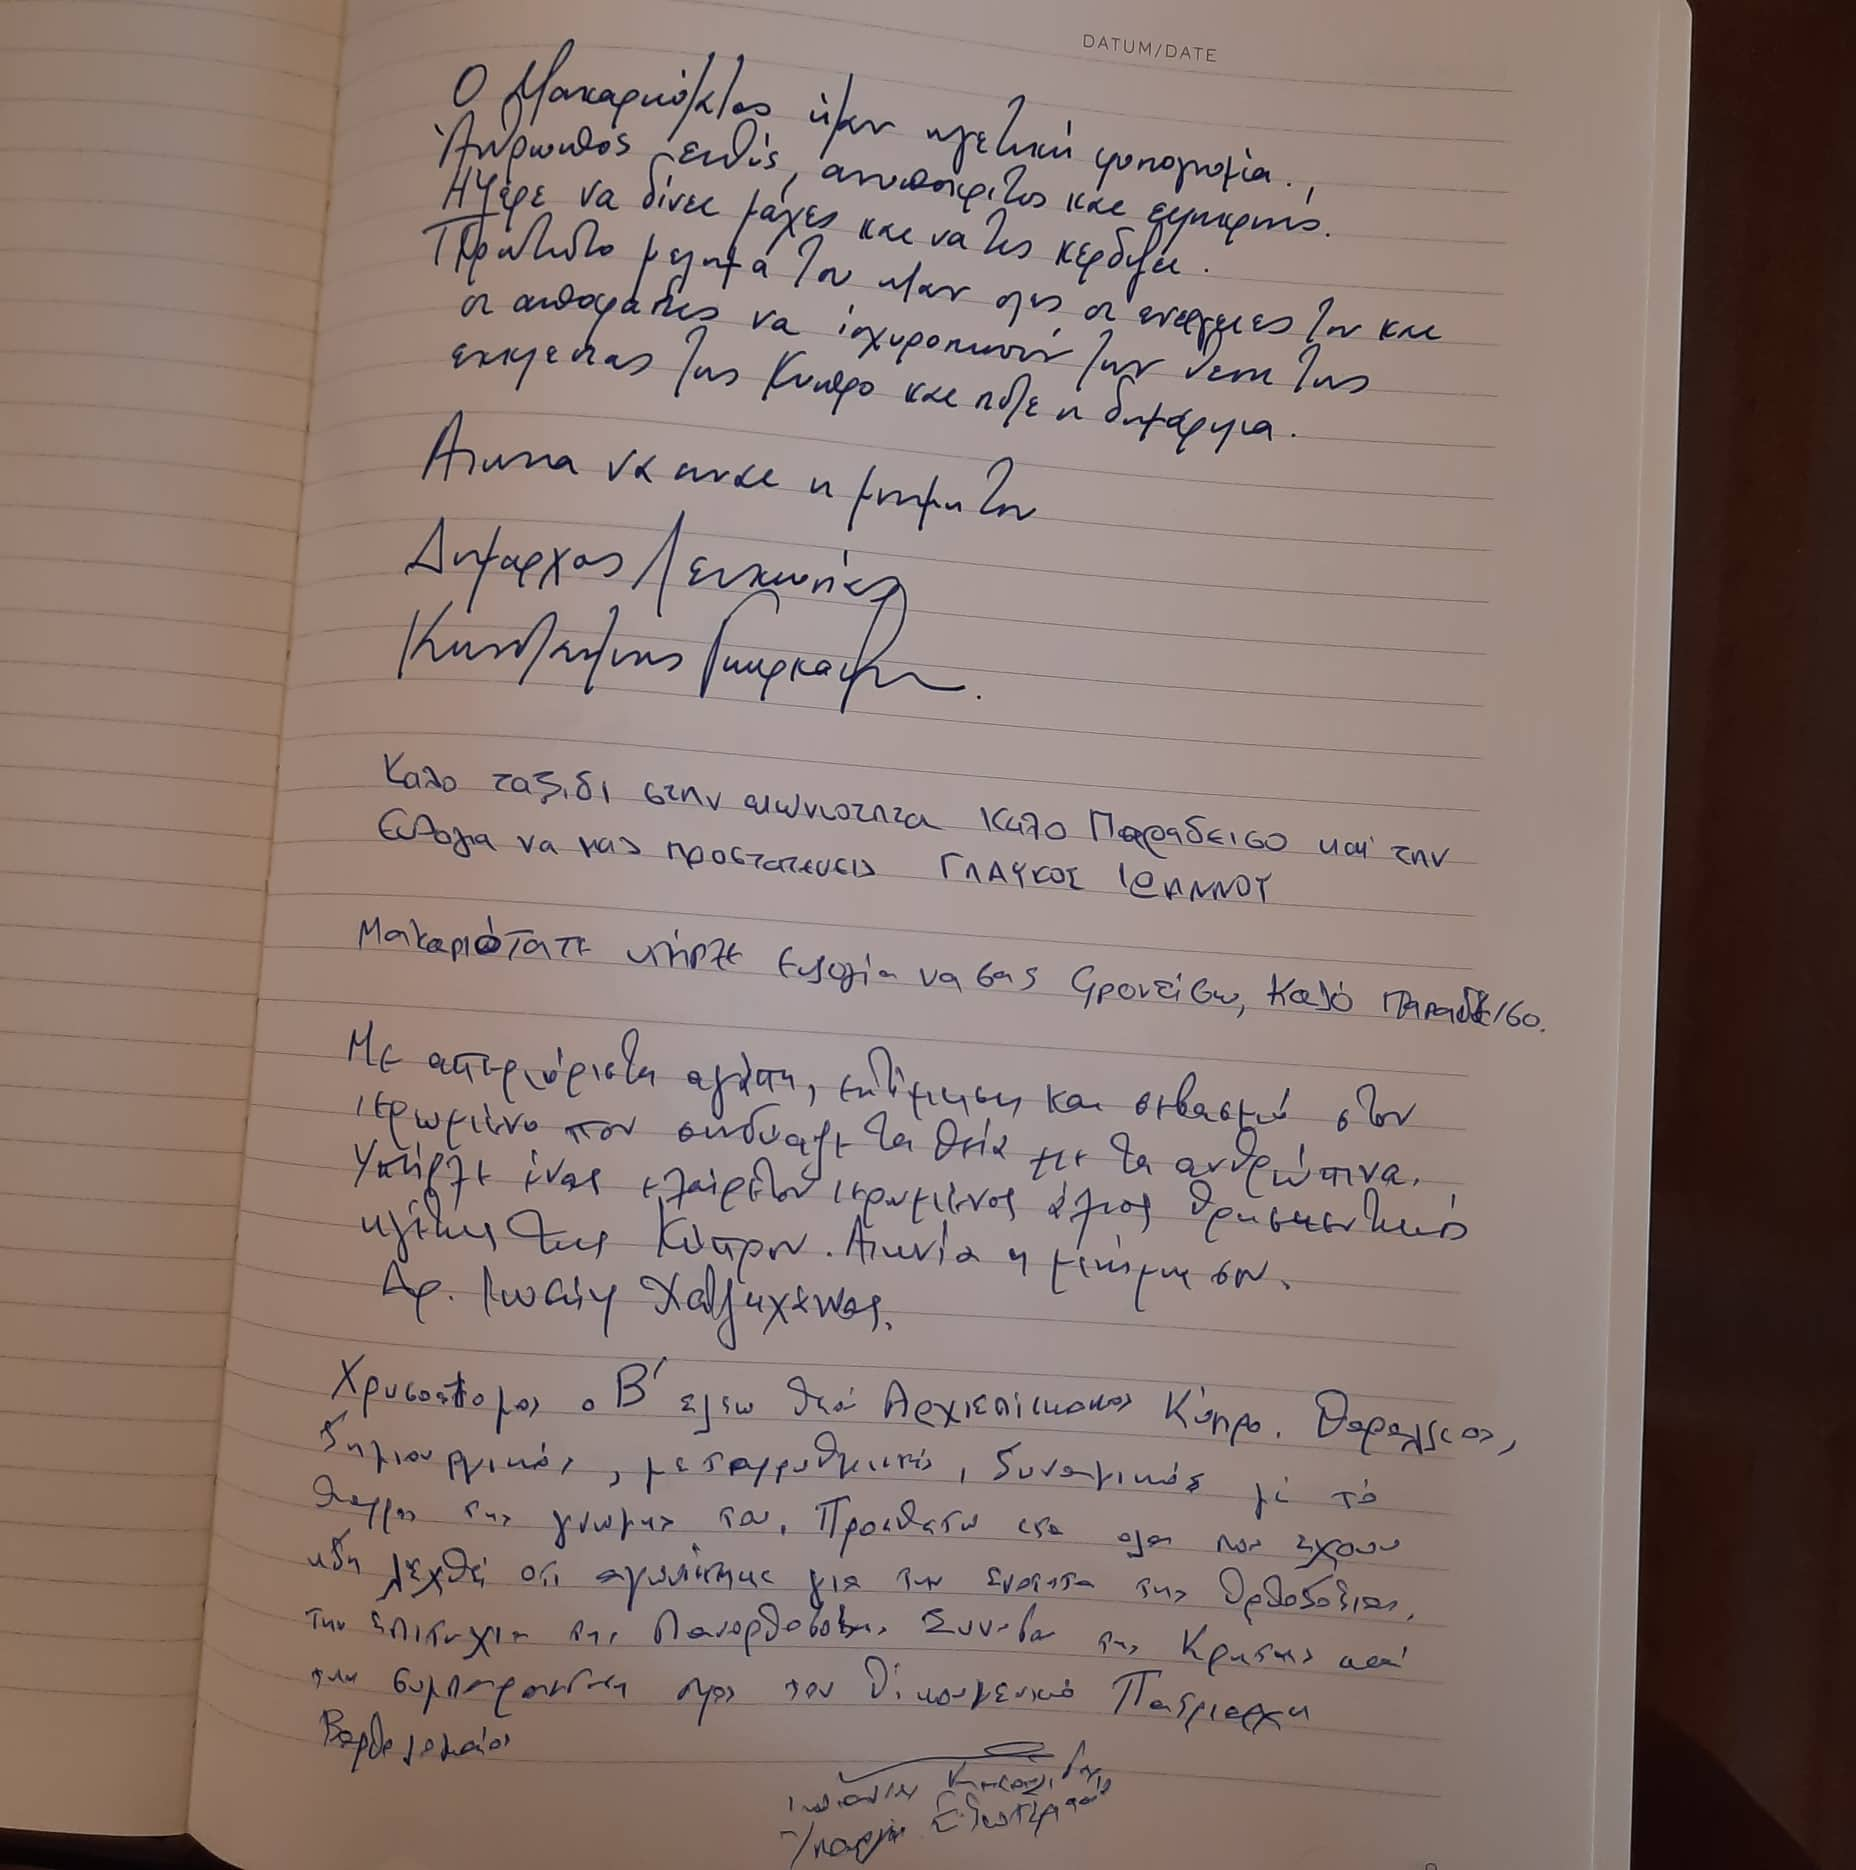 DATUM/DATE
Ο Μακαριότατος ήταν ηγετική φυσιογνωμία.
Άνθρωπος ευθύς, ανυπόκριτος και ειλικρινής.
Ήξερε να δίνει μάχες και να τις κερδίζει.
Πρώτιστο μέλημά του ήταν όλες οι ενέργειες του και
οι αποφάσεις να ισχυροποιούν την θέση της
εκκλησίας της Κύπρο και
Αιωνία να είναι η μνήμη του
Δήμαρχος Λευκωσίας
Κωνσταντίνος Γιωρκάτζης.
Καλο ταξιδι στην αιωνιοτητα Καλο Παραδεισο και την
Ευλογια να μας προστατευεις ΓΛΑΥΚΟΣ ΙΩΑΝΝΟΥ
Μακαριότατε υπήρξε ευλογία να σας φροντίσω, Καλό Παραδεισο.
Με απεριόριστη αγάπη, εκτίμηση και σεβασμό στον
ιερωμένο που συνδύαζε τα θεία με τα ανθρώπινα.
Υπήρξε ένας ιερωμένος άξιος θρησκευτικός
ηγέτης της Κύπρου. Αιωνία η μνήμη σου.
Δρ. Ιωσήφ
Χρυσοστομος ο Β΄ ελεω θεού Αρχιεπίσκοπος Κύπρο. Θαρραλεος,
δημιουργικός, μεταρρυθμιστής, δυναμικός μέ τό
θαρρος της γνωμης του. Προσθετω στα οσα που εχουν
ηδη λεχθεί οτι αγωνίστηκε για την ενοτητα της Ορθοδοξιας,
την επιτυχια της Πανορθοδοξης Συνοδου της Κρητης καί
την συμπαρασταση προς τον Οικουμενικό Πατριαρχη
Βαρθολομαίο